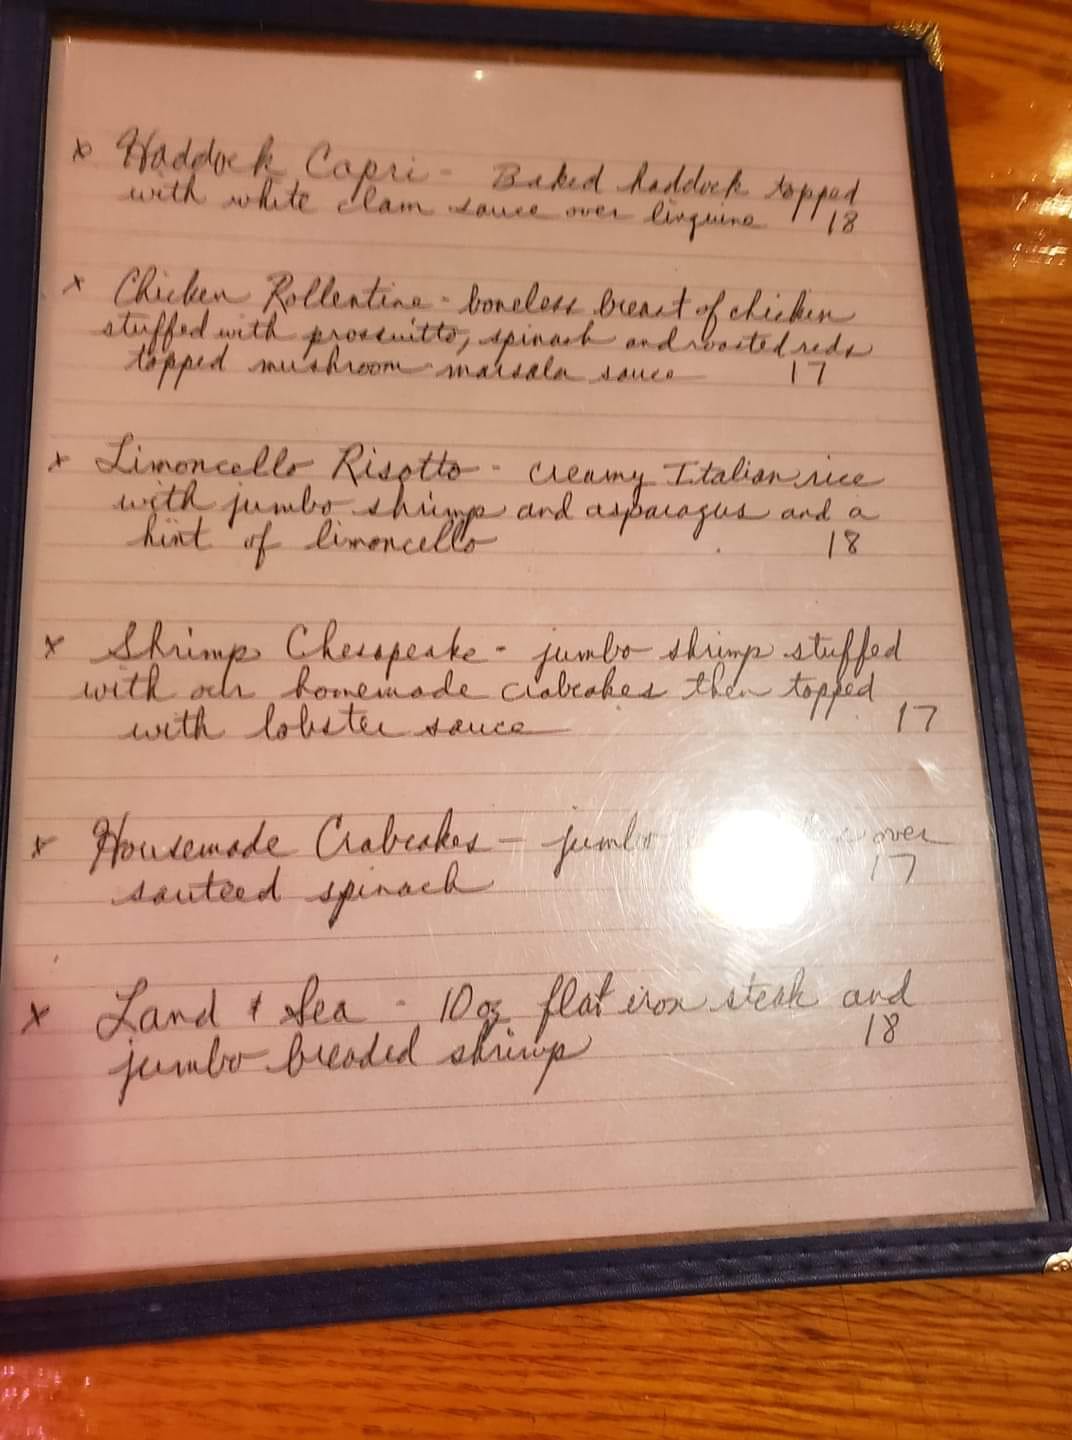 x Haddock Capri - Baked haddock topped
with white clam sauce over linguine 18
x Chicken Rollentine - boneless breast of chicken
stuffed with prossuitto, spinach and roasted reds
topped mushroom marsala sauce 17
x Limoncello Risotto - creamy Italian rice
with jumbo shrimp and asparagus and a
hint of limoncello 18
x Shrimp Chesapeake - jumbo shrimp stuffed
with our homemade crabcakes then topped
with lobster sauce 17
x Housemade Crabcakes - jumbo over
sauteed spinach 17
x Land & Sea - 10 oz flat iron steak and
jumbo breaded shrimp 18